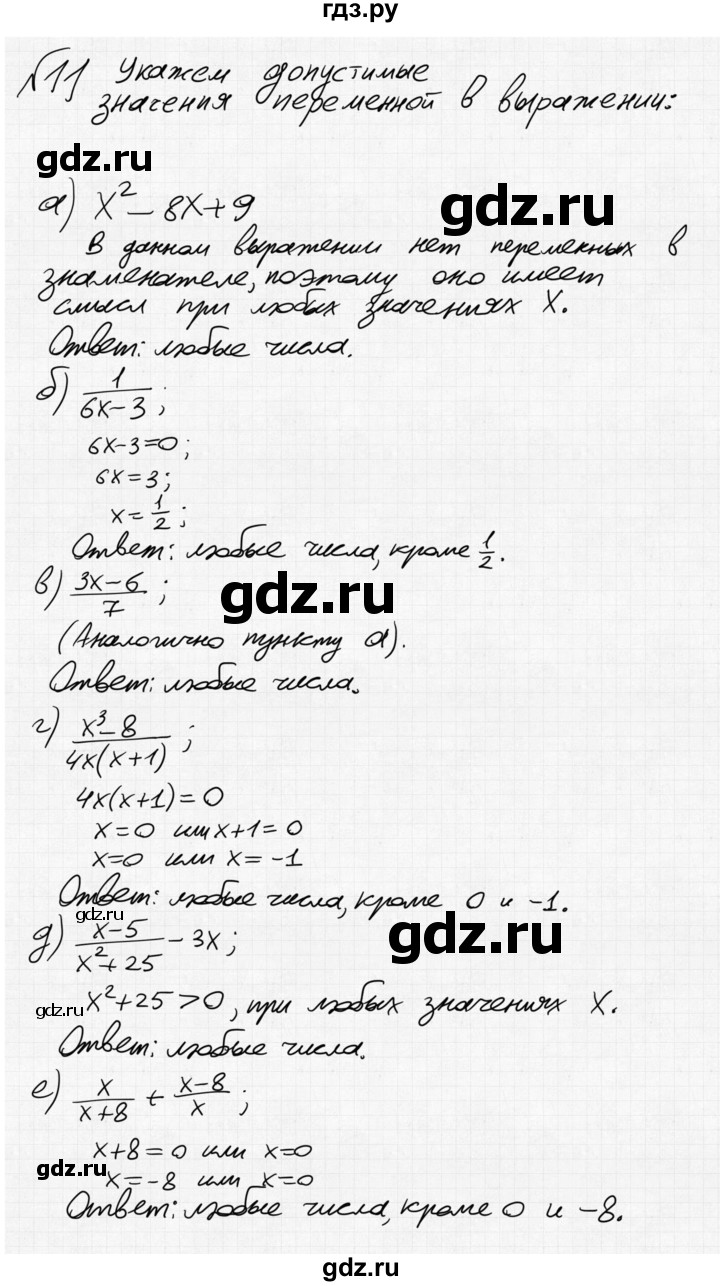 гдз.ру
№11 Укажем допустимые
значения переменной в выражении:
gdz.ru
а) x² - 8x + 9
gdz.ru
В данном выражении нет переменных в
знаменателе, поэтому оно имеет
смысл при любых значениях X.
Ответ: любые числа.
б) 1/(6x-3);
6x-3=0;
6x=3;
x=1/2;
Ответ: любые числа, кроме 1/2.
в) (3x-6)/7;
gdz.ru
(Аналогично пункту а).
Ответ: любые числа.
г) (x³-8)/(4x(x+1));
4x(x+1)=0
x=0 или x+1=0
x=0 или x=-1
Ответ: любые числа, кроме 0 и -1.
gdz.ru
д) (x-5)/(x²+25) - 3x;
gdz.ru
gdz.ru
x²+25>0, при любых значениях X.
Ответ: любые числа.
е) x/(x+8) + (x-8)/x;
x+8=0 или x=0
gdz.ru
x=-8 или x=0
Ответ: любые числа, кроме 0 и -8.
gdz.ru